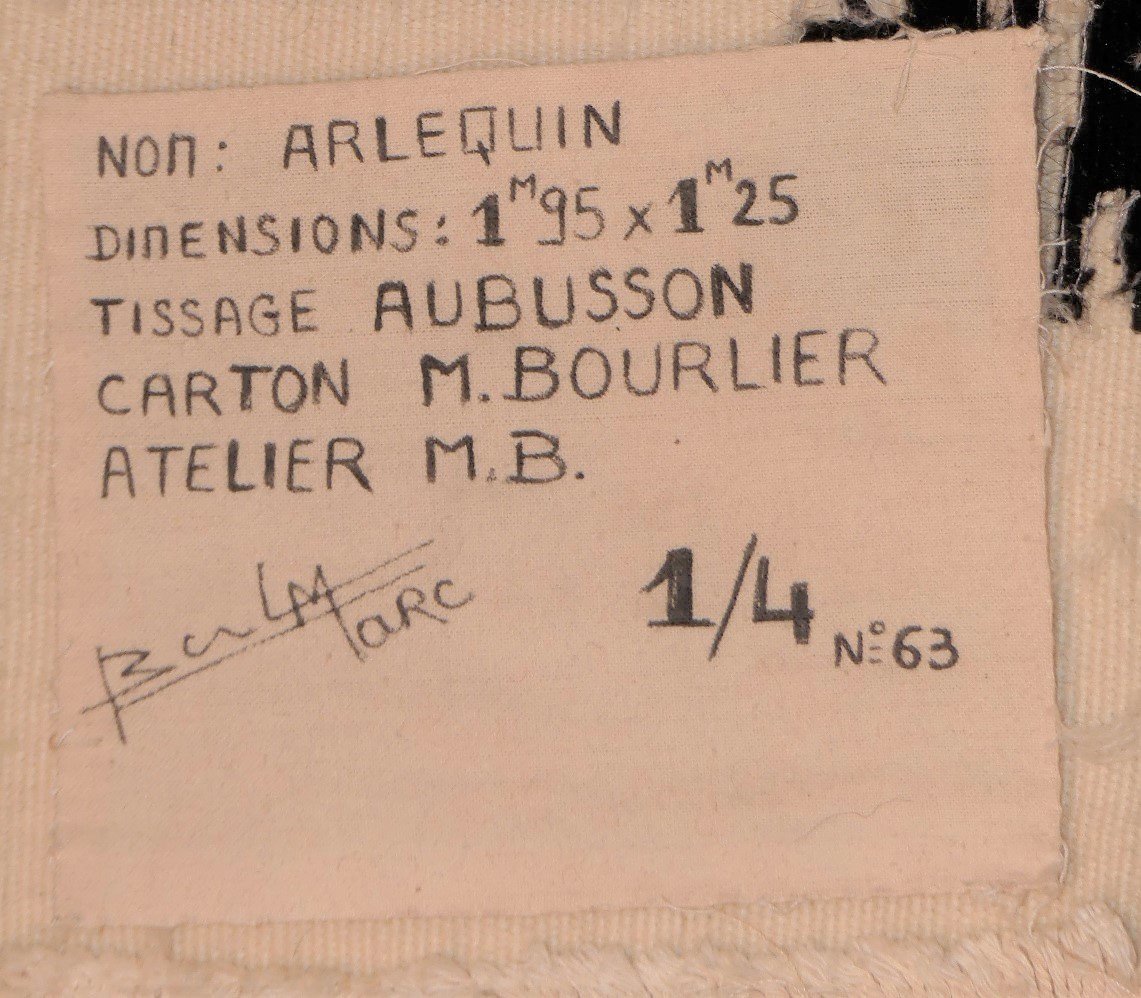 NOM: ARLEQUIN
DIMENSIONS: 1M95 x 1M25
TISSAGE AUBUSSON
CARTON M. BOURLIER
ATELIER M.B.
Marc
1/4 No 63